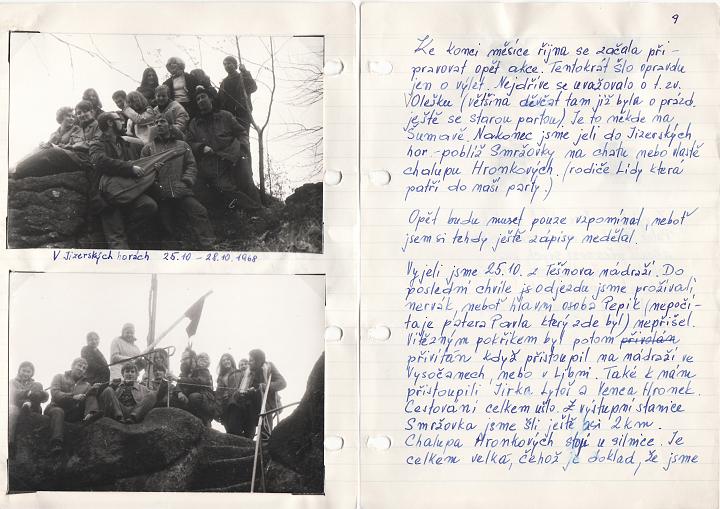 V Jizerských horách 25.10 - 28.10.1968
9
Ke konci měsíce října se začala při-
pravovat opět akce. Tentokrát šlo opravdu
jen o výlet. Nejdříve se uvažovalo o t. zv.
Olešku (většina děvčat tam již byla o prázd.
ještě se starou partou) Je to někde na
Šumavě. Nakonec jsme jeli do Jizerských
hor. - poblíž Smržovky na chatu nebo vlastě
chalupu Hronkových. (rodiče Lídy která
patří do naší party.)
Opět budu muset pouze vzpomínat, neboť
jsem si tehdy ještě zápisy nedělal.
Vyjeli jsme 25.10. z Těšnova nádraží. Do
poslední chvíle js odjezdu jsme prožívali
nervák, neboť hlavní osoba Pepík (nepočí-
taje pátera Pavla který zde byl) nepřišel.
Vítězným pokřikem byl potom přivolán
přivítán když přistoupil na nádraží ve
Vysočanech, nebo v Libni. Také k nám
přistoupili Jirka Lytoš a Venca Hronek.
Cestování celkem ušlo. Z výstupní stanice
Smržovka jsme šli ještě asi 2 km.
Chalupa Hronkových stojí u silnice. Je
celkem velká, čehož je doklad, že jsme